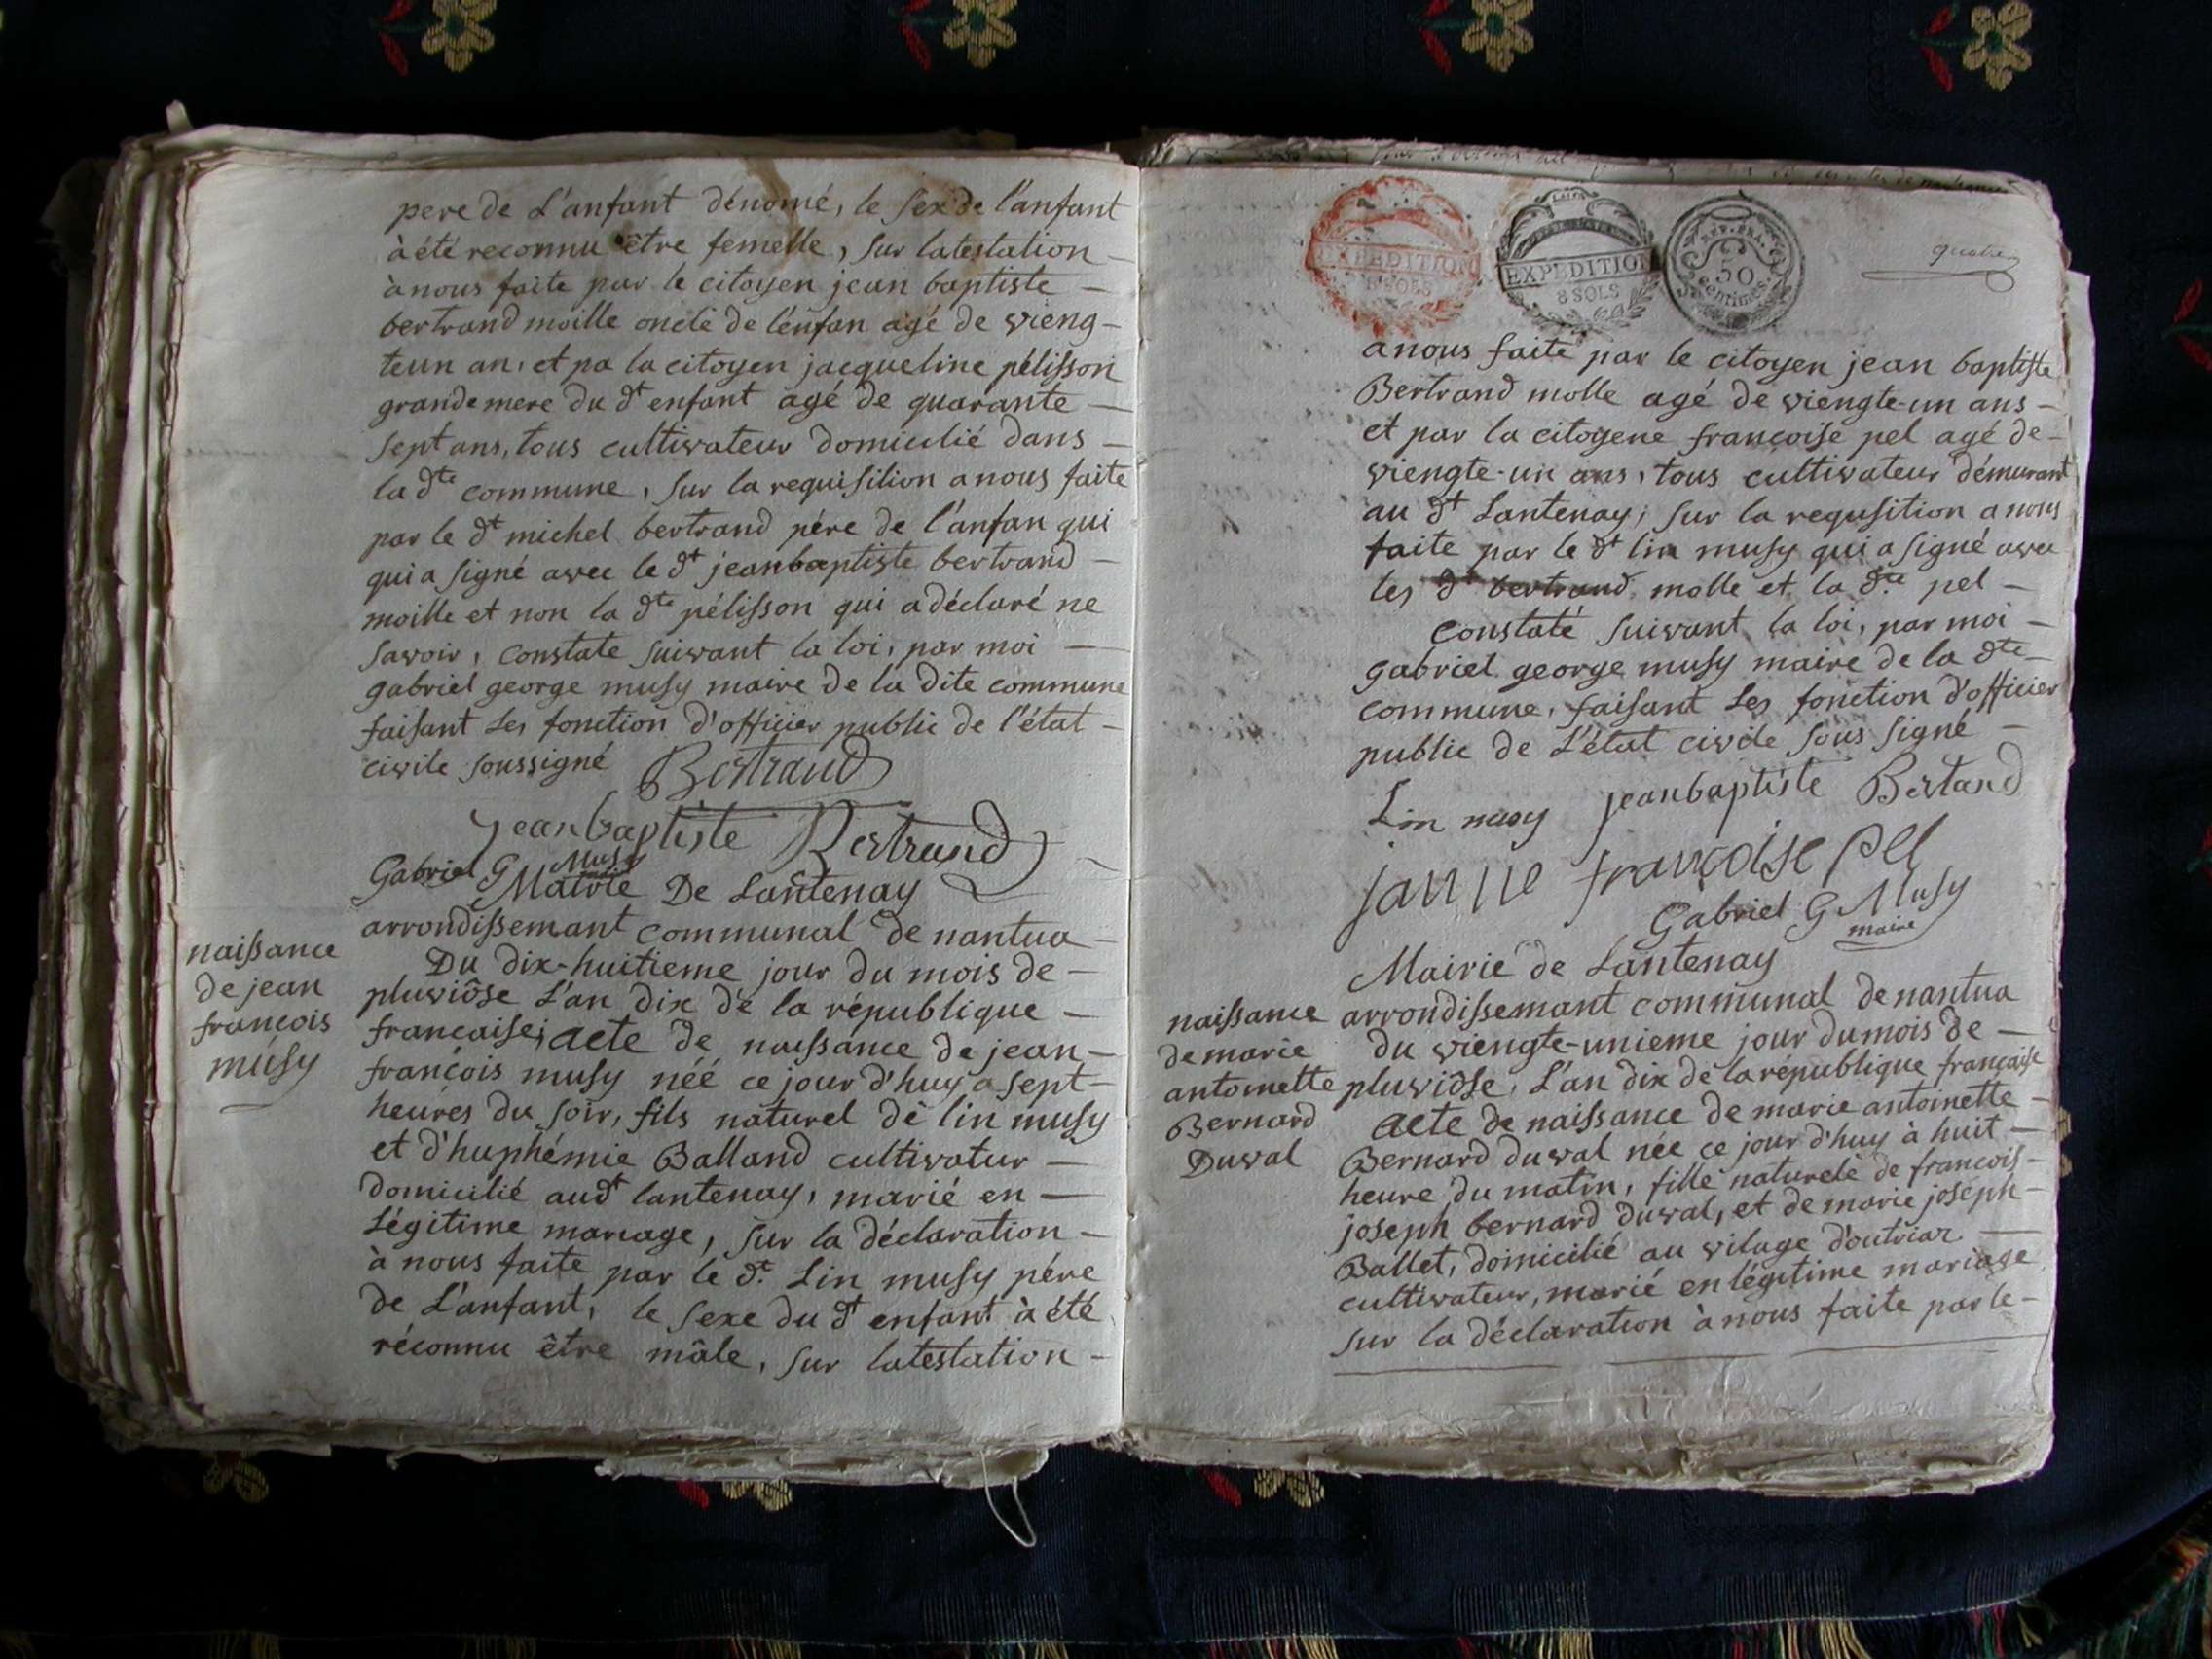 pere de L'anfant dénomé, le sex de l'anfant
à été reconnu être femelle, sur latestation
à nous faite par le citoyen jean baptiste
bertrand moille oncle de l'enfan agé de vieng-
teun an, et pa la citoyen jacqueline pélisson
grandemere du dt enfant agé de quarante
sept ans, tous cultivateur domicilié dans
la dte commune, sur la requisition a nous faite
par le dt michel bertrand pére de l'anfan qui
qui a signé avec le dt jeanbaptiste bertrand
moille et non la dte pélisson qui a déclaré ne
savoir, constate suivant la loi, par moi
gabriel george musy maire de la dite commune
faisant les fonction d'officier public de l'état
civile soussigné Bertrand
jeanbaptiste Bertrand
Gabriel G Musy
maire
Mairie De Lantenay
arrondissemant communal de nantua
naissance
de jean
francois
musy
Du dix-huitieme jour du mois de
pluviôse L'an dix de la république
francaise; acte de naissance de jean
francois musy néé ce jour d'huy a sept
heures du soir, fils naturel de lin musy
et d'huphémie Balland cultivatur
domicilié audt lantenay, marié en
légitime mariage, sur la déclaration
à nous faite par le dt Lin musy pére
de L'anfant, le sexe du dt enfant à été
réconnu être mâle, sur latestation
EXPEDITION
8 SOLS
EXPEDITION
8 SOLS
REP. FRA.
50
centimes
a nous faite par le citoyen jean baptiste
Bertrand molle agé de viengte-un ans
et par la citoyene francoise pel agé de
viengte-un ans, tous cultivateur démurant
au dt Lantenay; sur la requsition a nous
faite par le dt lin musy qui a signé avec
les dt bertrand molle et la dte pel
constaté suivant la loi, par moi
gabriel george musy maire de la dte
commune, faisant les fonction d'officier
public de L'état civile sous signé
Lin musy jeanbaptiste Bertand
janne françoise pel
Gabriel G Musy
maire
Mairie de Lantenay
arrondissemant communal de nantua
naissance
de marie
antoinette
Bernard
Duval
du viengte-unieme jour du mois de
pluviôse, L'an dix de la république française
acte de naissance de marie antoinette
Bernard duval née ce jour d'huy à huit
heure du matin, fille naturele de francois
joseph bernard duval, et de marie joseph
Ballet, domicilié au vilage d'outriaz
cultivateur, marié en légitime mariage
sur la déclaration à nous faite par le